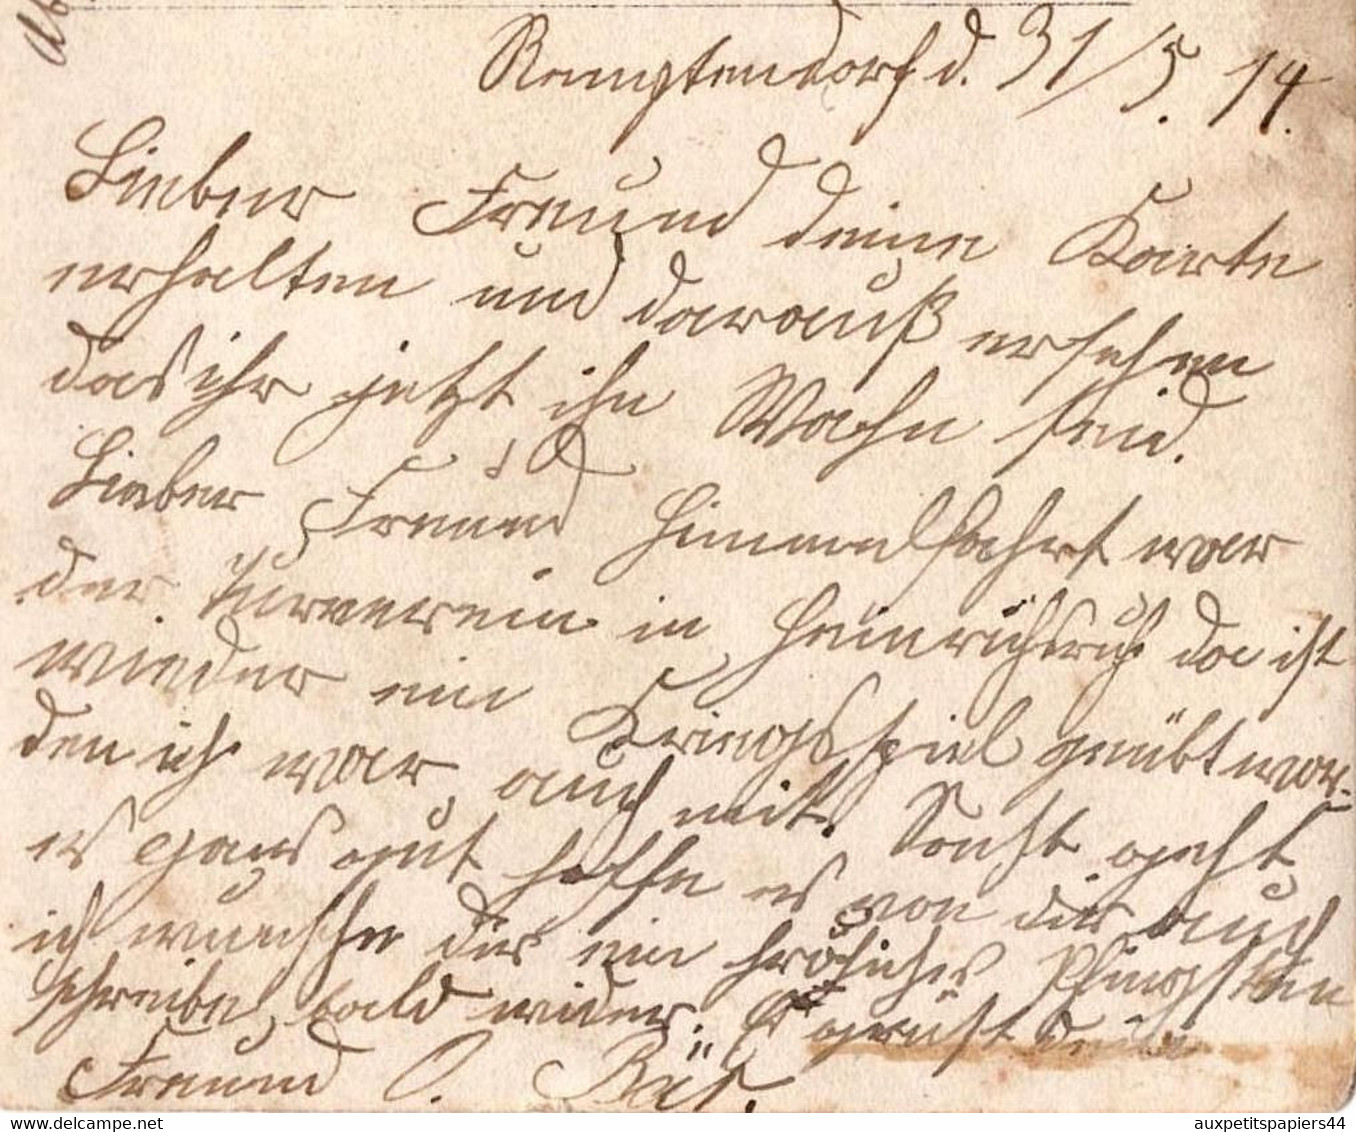 Remptendorf d. 31/5. 14.
Lieber Freund deine Karte
erhalten und darauß ersehen
das ihr jetzt ihn Wahn seid.
Lieber Freund Himmelfahrt war
der Turverein in Heinrichsruh da ist
wieder ein Kriegsspiel geübt wor-
den ich war auch mit. Sonst geht
es gans gut hoffe es von dir auch
ich wünsche dir ein fröhliches Pfingsten
schreibe bald wieder. Es grüßt dein
Freund O.
www.delcampe.net
auxpetitspapiers44